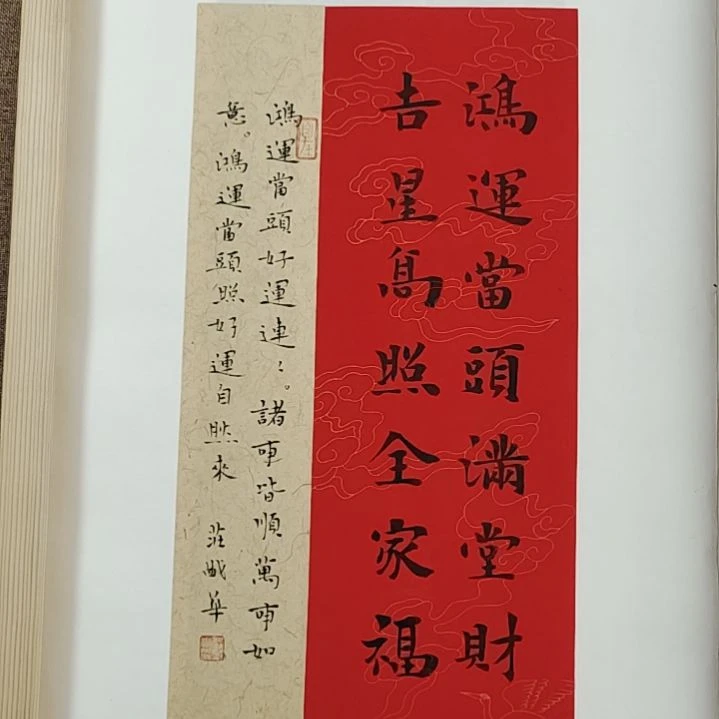 鴻運當頭滿堂財
吉星高照全家福
鴻運當頭好運連〻。諸事皆順萬事如
意。鴻運當頭照好運自然來
莊〻華